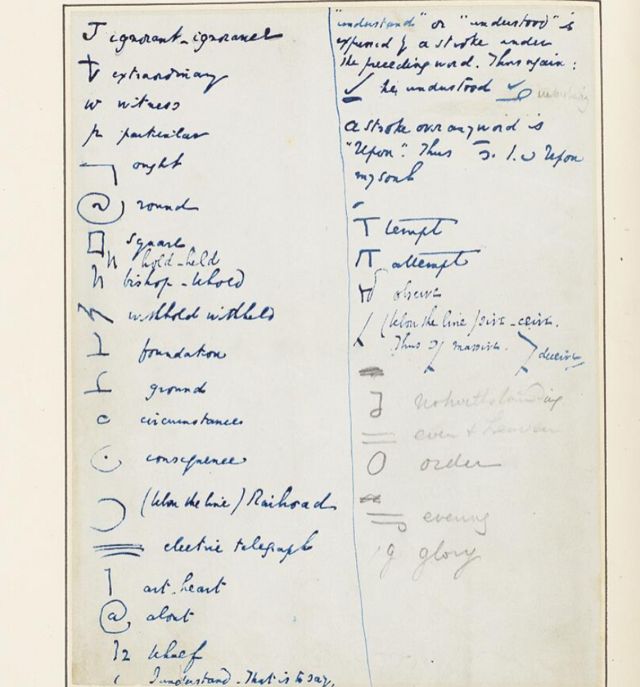 ignorant - ignorance
extraordinary
w witness
particular
ought
round
square
hold - held
bishop - behold
withhold withheld
foundation
ground
circumstances
consequence
(below the line) Railroad
electric telegraph
art - heart
@ about
behalf
I understand. That is to say,
"understand" or "understood" is
expressed by a stroke under
the preceding word. Thus again:
he understood
a stroke over any word is
"Upon". Thus Upon
my soul
tempt
attempt
observe
(below the line) sive - ceive.
Thus massive. deceive
Notwithstanding
even & heaven
order
evening
glory